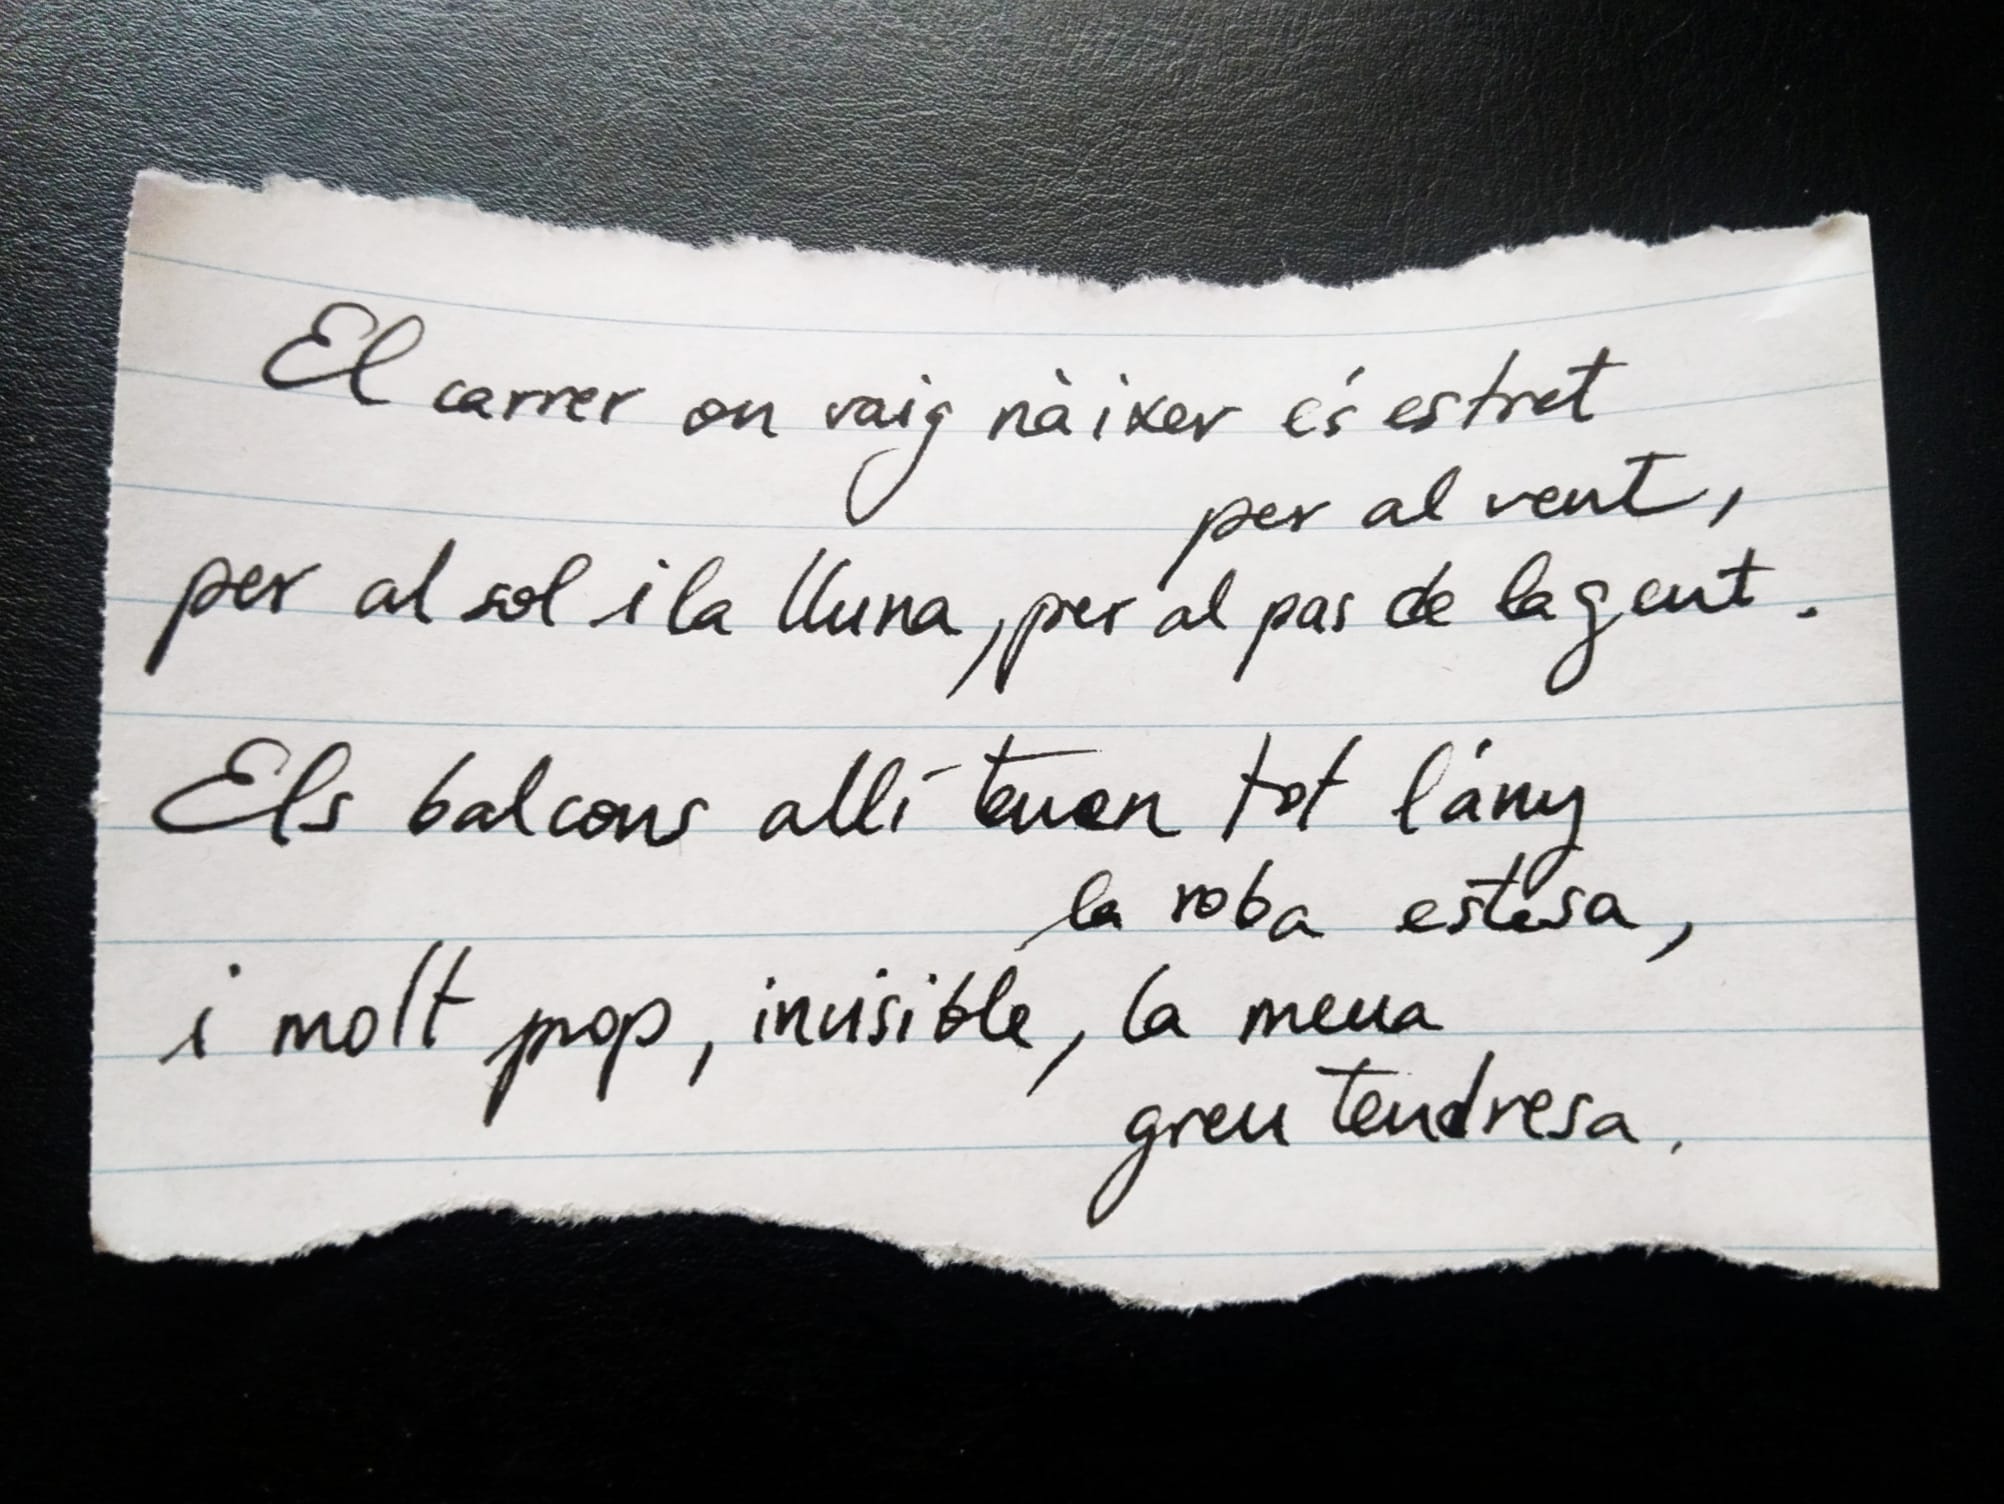 El carrer on vaig nàixer és estret
per al vent,
per al sol i la lluna, per al pas de la gent.
Els balcons allí tenen tot l'any
la roba estesa,
i molt prop, invisible, la meua
greu tendresa.